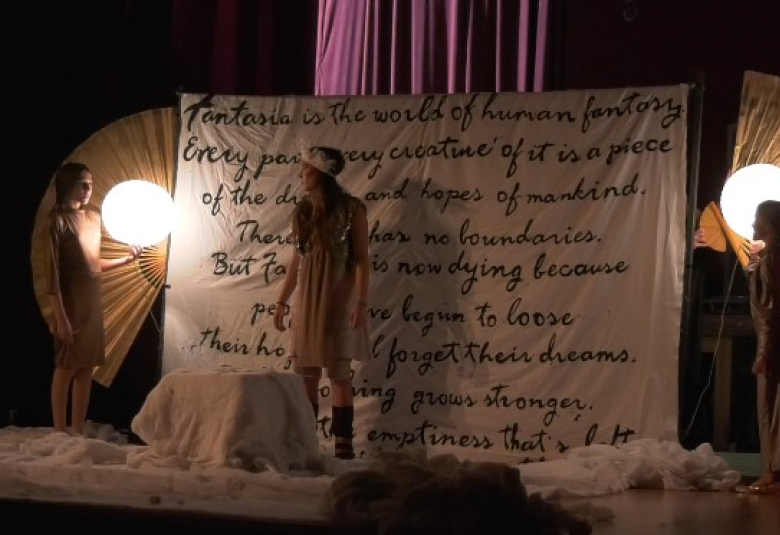 Fantasia is the world of human fantasy.
Every par very creatine' of it is a piece
of the dr and hopes of mankind.
There has no boundaries.
But Fa is now dying because
pe ve begun to loose
their ho d forget their dreams.
hing grows stronger.
the emptiness that's left